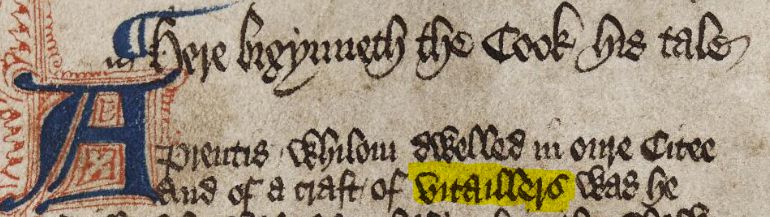 Here bigynneth the Cook his tale
A Prentis whilom dwelled in oure Citee
And of a craft of vitaillers was he